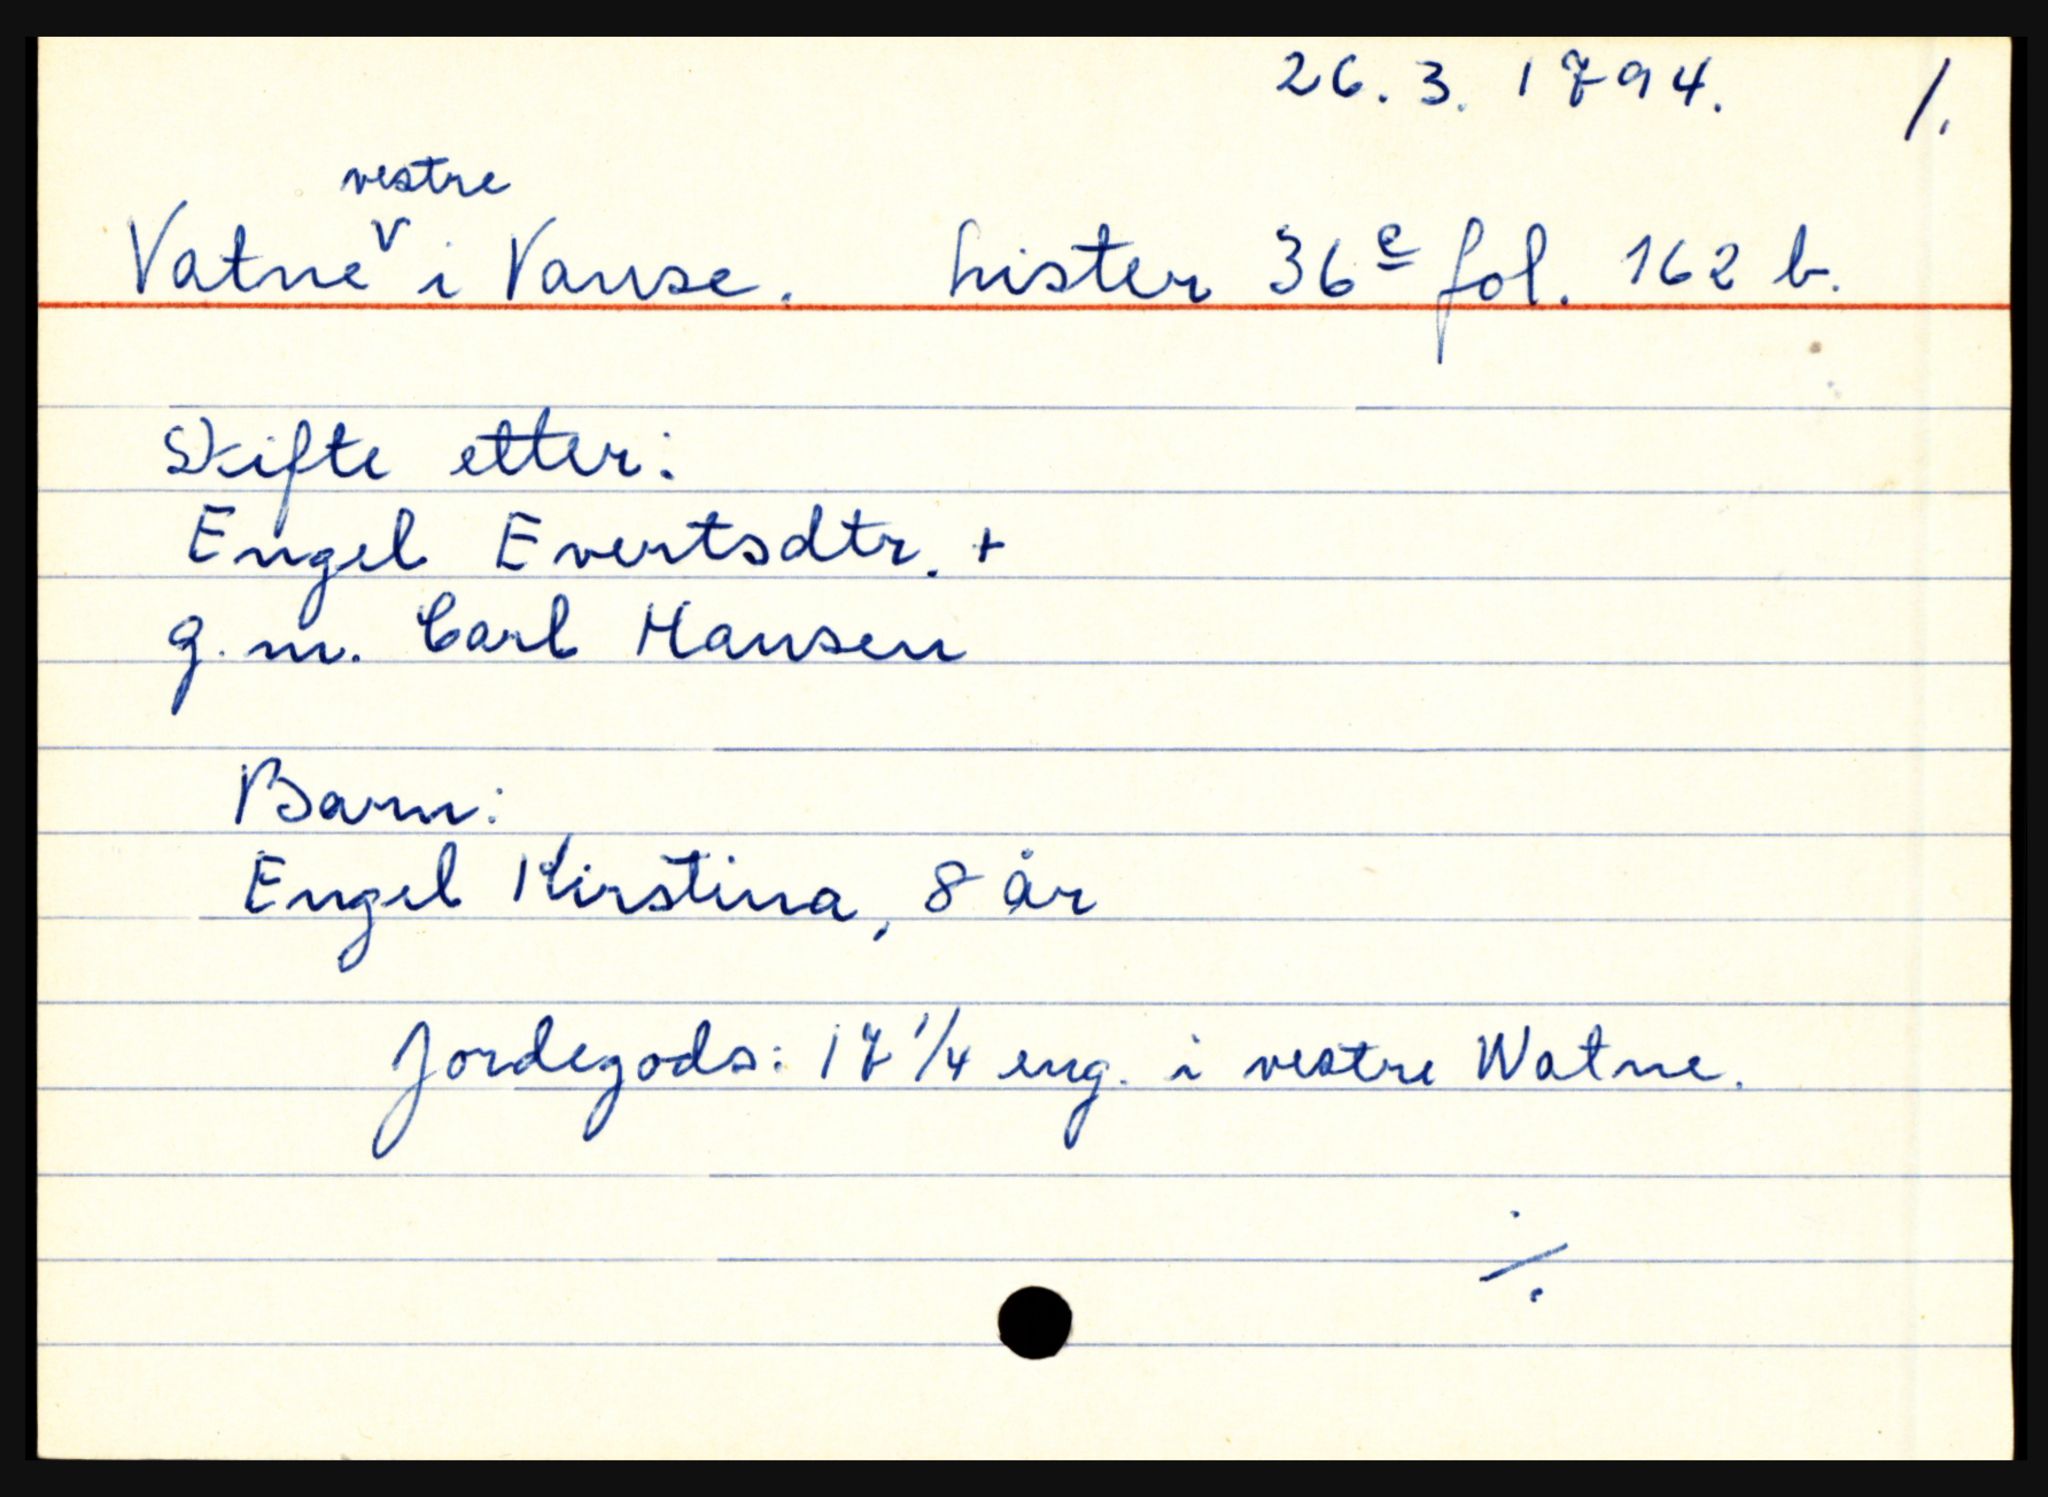 26. 3. 1794. 1.
vestre
Vatne v i Vanse. Lister 36 c fol. 162 b.
Skifte etter:
Engel Evertsdtr. +
g. m. Carl Hansen
Barn:
Engel Kirstina, 8 år
Jordegods: 17 1/4 eng. i vestre Watne.
./.